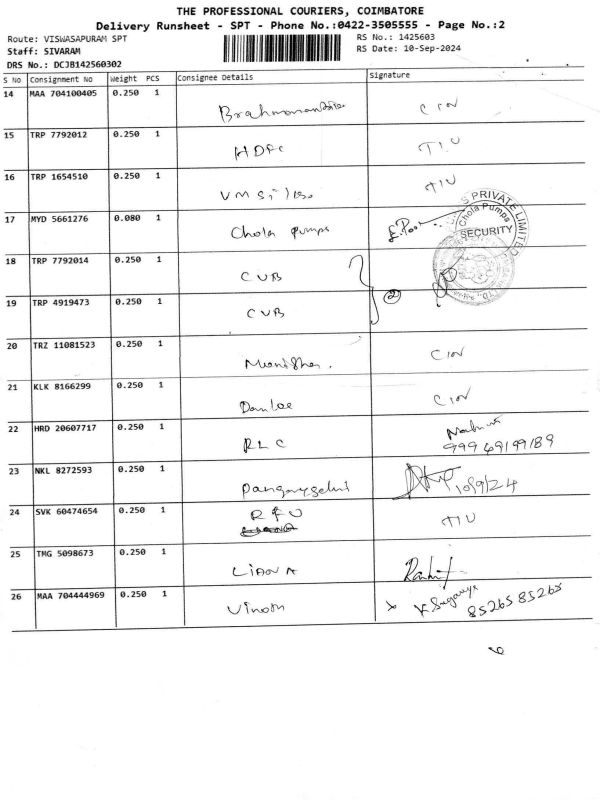 THE PROFESSIONAL COURIERS, COIMBATORE
Delivery Runsheet - SPT - Phone No.:0422-3505555 - Page No.:2
Route: VISWASAPURAM SPT
RS No.: 1425603
Staff: SIVARAM
RS Date: 10-Sep-2024
DRS No.: DCJB142560302
S No Consignment No Weight PCS Consignee Details Signature
14 MAA 704100405 0.250 1
15 TRP 7792012 0.250 1 HDFC
16 TRP 1654510 0.250 1 VM
17 MYD 5661276 0.080 1 Chola pumps
PRIVATE LIMITED
Chola Pumps
SECURITY
18 TRP 7792014 0.250 1 CUB
2
19 TRP 4919473 0.250 1 CUB
20 TRZ 11081523 0.250 1
21 KLK 8166299 0.250 1
22 HRD 20607717 0.250 1 RLC
99949199189
23 NKL 8272593 0.250 1 10/9/24
24 SVK 60474654 0.250 1
25 TMG 5098673 0.250 1 LIANA
26 MAA 704444969 0.250 1 Vinoth
85265 85265